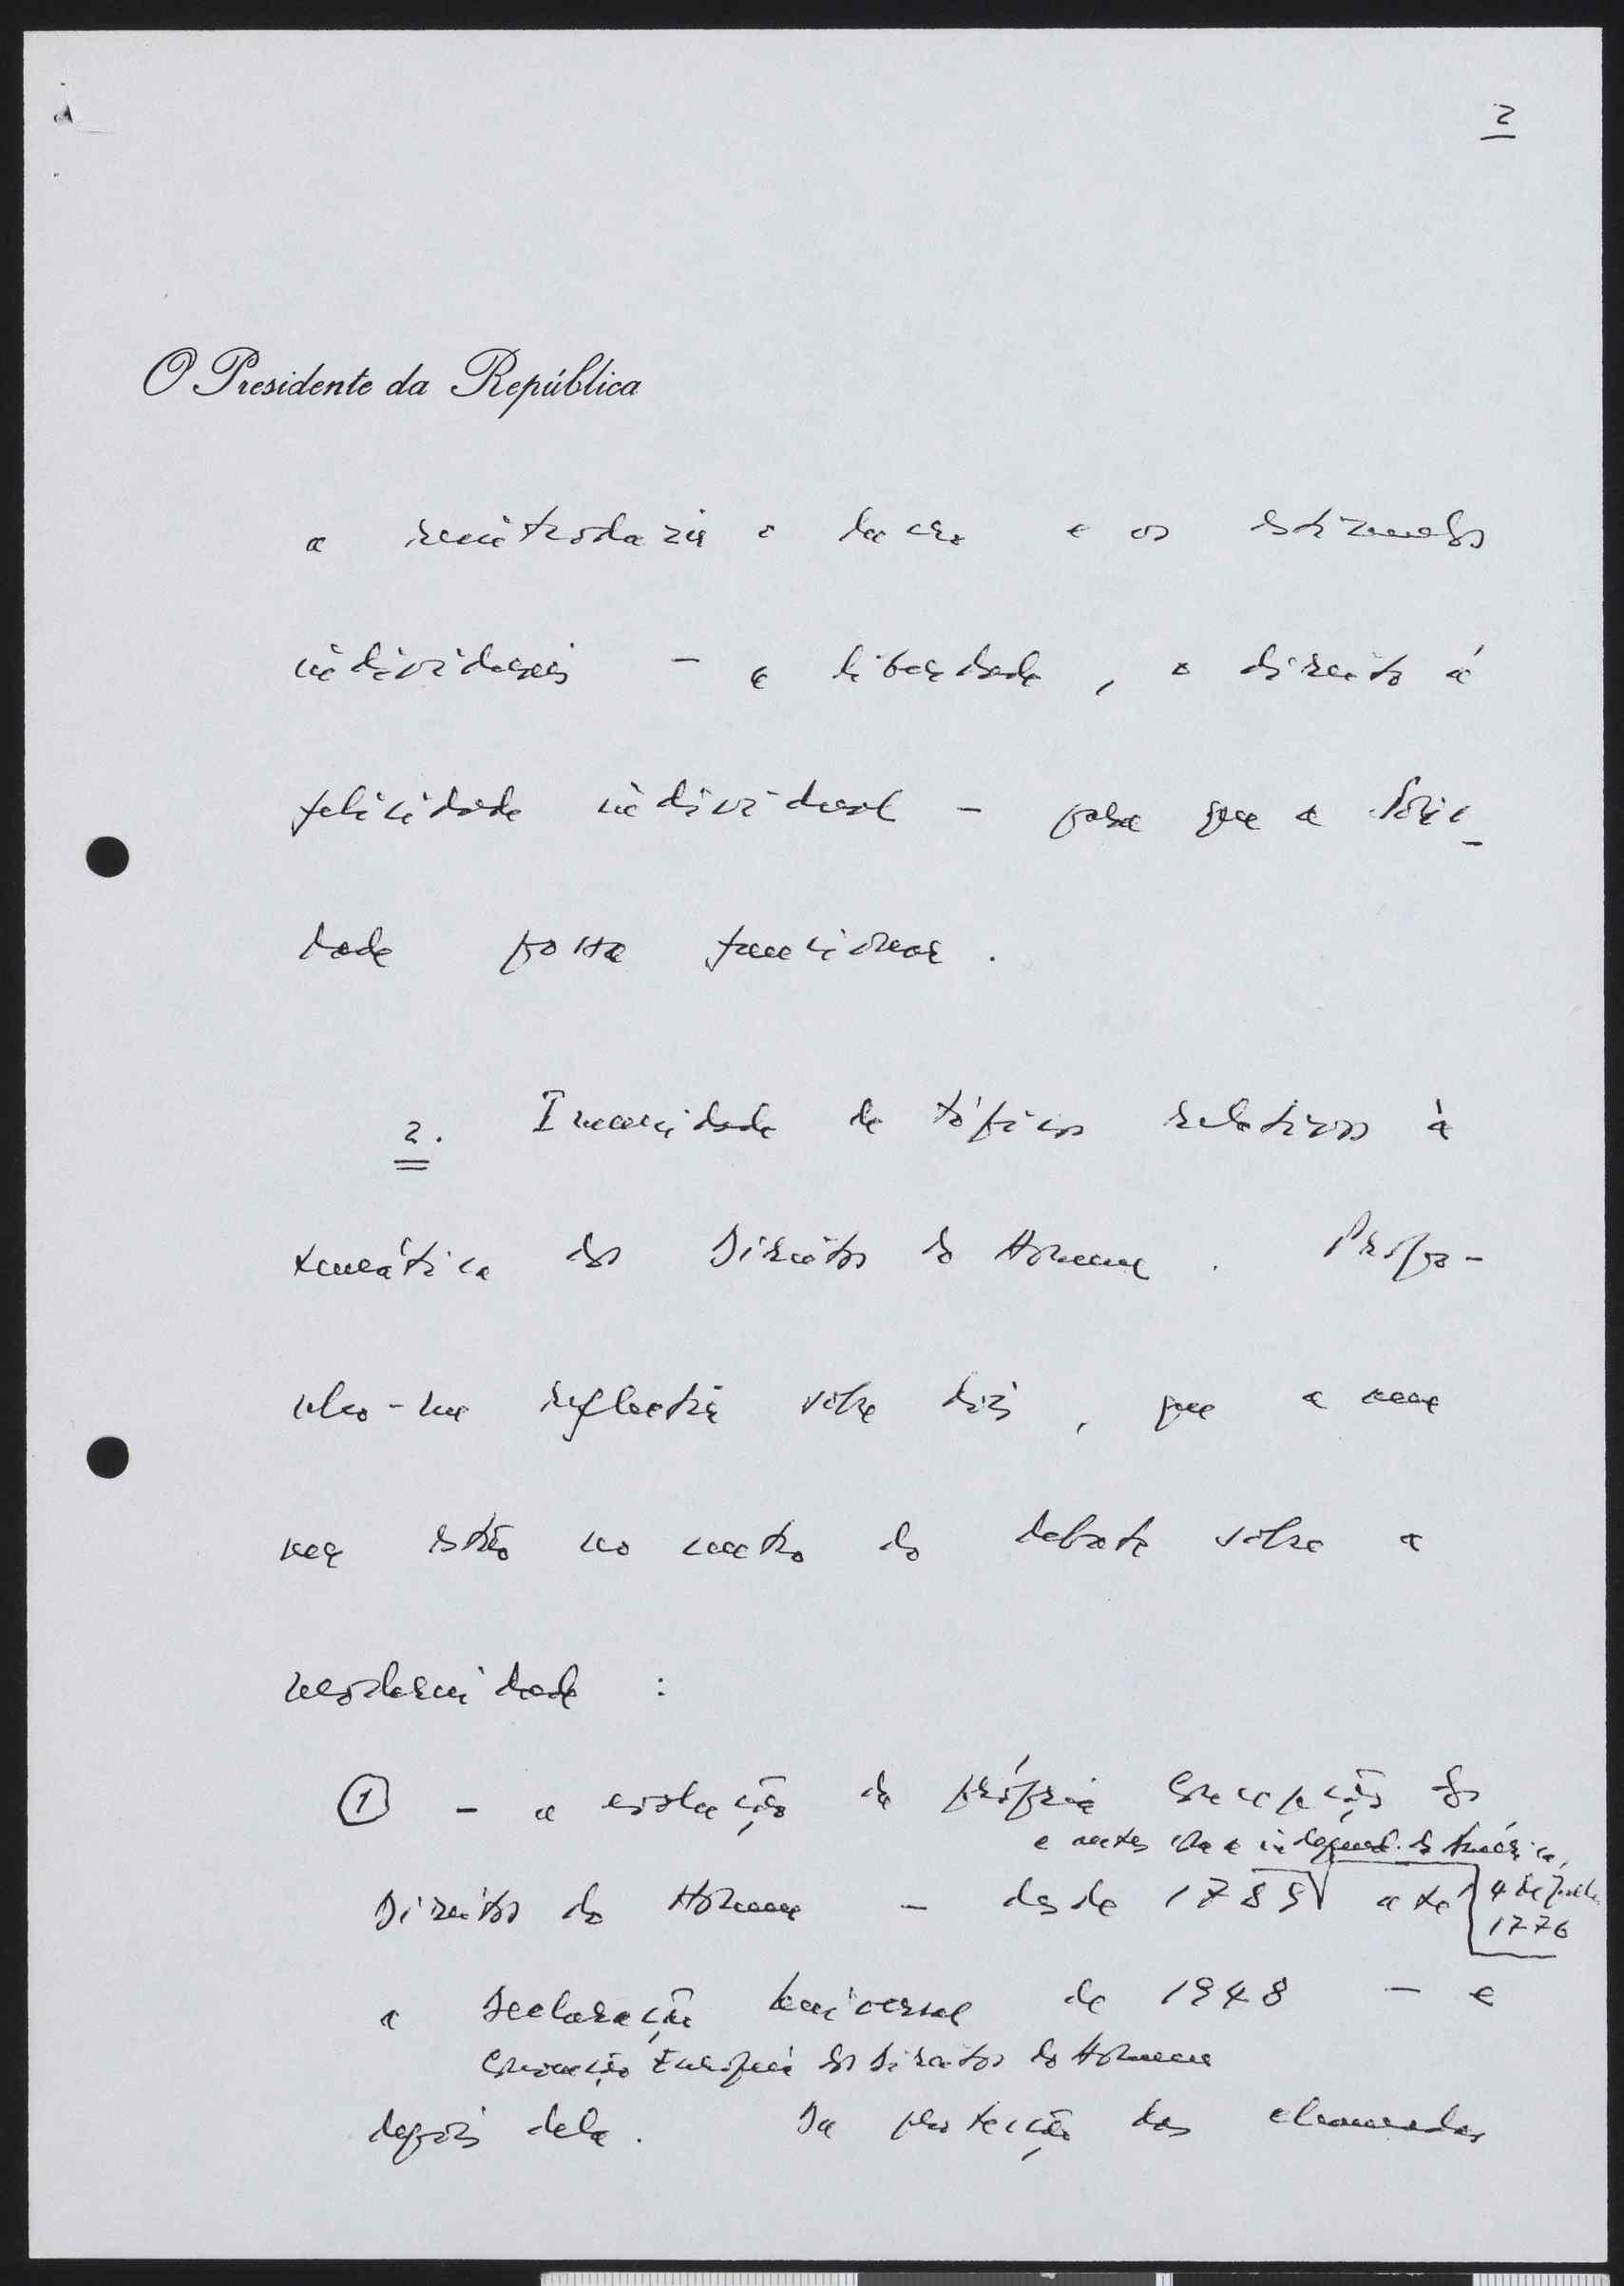 2
O Presidente da República
a reintroduzir o lucro e os estímulos
individuais - a liberdade, o direito à
felicidade individual - para que a Socie-
dade possa funcionar.
2. Imensidade de tópicos relativos à
temática dos Direitos do Homem. Propo-
nho-me reflectir sobre dois, que a meu
ver estão no centro do debate sobre a
modernidade :
1 - a evolução da própria concepção dos
e antes com a independ. da América,
Direitos do Homem - desde 1789 até
4 de Julho
1776
a Declaração Universal de 1948 - e
Convenção Europeia dos Direitos do Homem
depois dela. Da protecção das chamadas